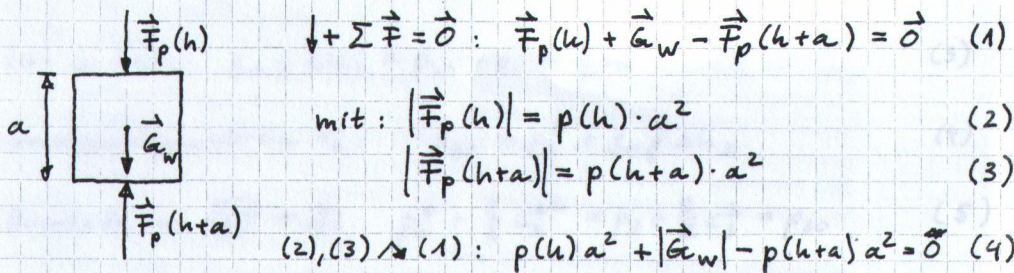 F⃗_p(h)
a
G⃗_w
F⃗_p(h+a)
↓+ Σ F⃗ = 0⃗ : F⃗_p(h) + G⃗_w − F⃗_p(h+a) = 0⃗ (1)
mit : |F⃗_p(h)| = p(h) · a² (2)
|F⃗_p(h+a)| = p(h+a) · a² (3)
(2), (3) ↘ (1) : p(h) a² + |G⃗_w| − p(h+a) a² = 0⃗ (4)